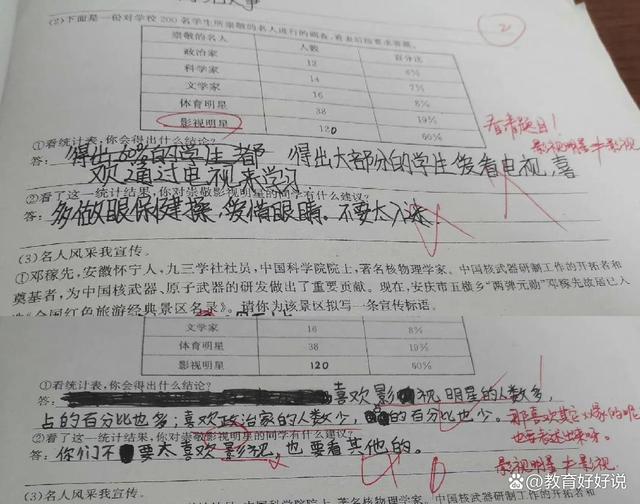 (2)下面是一份对学校200名学生所崇敬的名人进行的调查,看表后按要求答题。
2
崇敬的名人 人数 百分比
政治家 12 6%
科学家 14 7%
文学家 16 8%
体育明星 38 19%
影视明星 120 60%
看清题目!
影视明星≠影视
①看统计表,你会得出什么结论?
答:得出60%的学生都 得出大部分的学生爱看电视,喜
欢通过电视来学习
②看了这一统计结果,你对崇敬影视明星的同学有什么建议?
答:多做眼保健操,爱惜眼睛。不要太入迷
(3)名人风采我宣传。
①邓稼先,安徽怀宁人,九三学社社员,中国科学院院士,著名核物理学家、中国核武器研制工作的开拓者和
奠基者,为中国核武器、原子武器的研发做出了重要贡献。现在,安庆市五横乡“两弹元勋”邓稼先故居已入
选《全国红色旅游经典景区名录》。请你为该景区拟写一条宣传标语。
文学家 16 8%
体育明星 38 19%
影视明星 120 60%
①看统计表,你会得出什么结论?
答: 喜欢影视明星的人数多,
占的百分比也多;喜欢政治家的人数少, 的百分比也少。
那喜欢其它
也要表达出来呀。
②看了这一统计结果,你对崇敬影视明星的同学有什么建议?
答:你们不要太喜欢影视,也要看其他的。
影视明星≠影视
(3)名人风采我宣传。
头条 @教育好好说